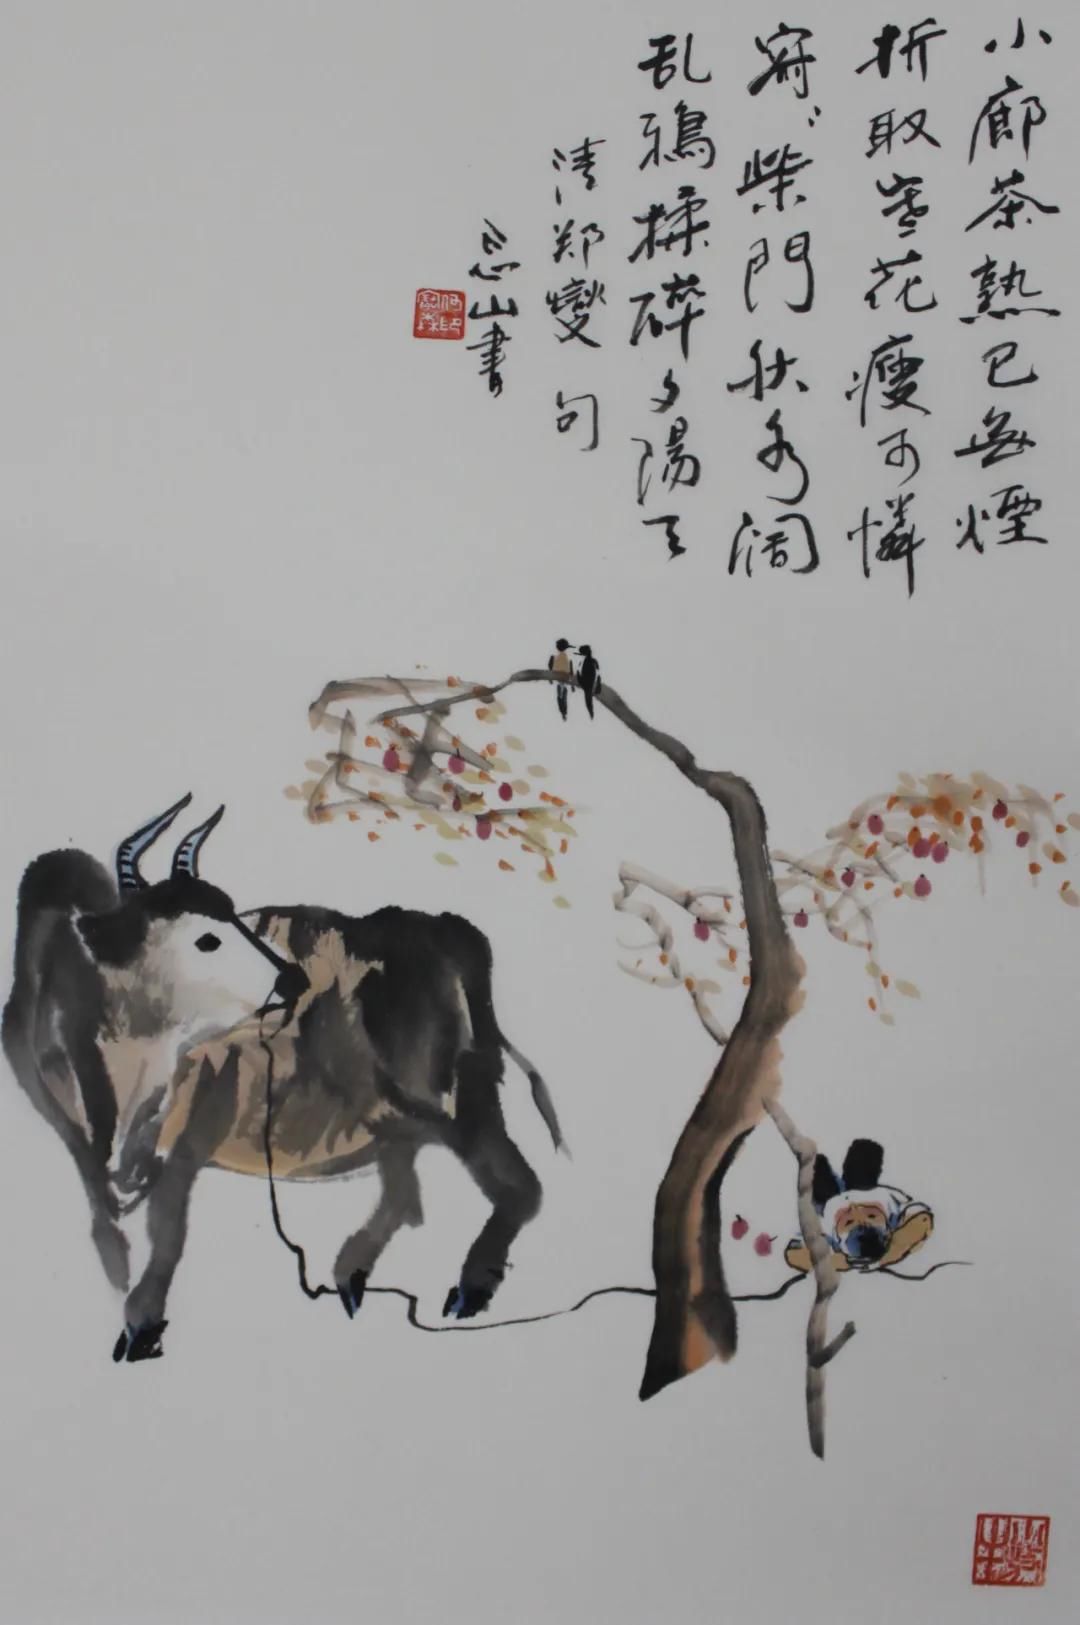 小廊茶熟已無煙
折取寒花瘦可憐
寂〻柴門秋水阔
乱鴉揉碎夕陽天
清郑燮句
忘山書